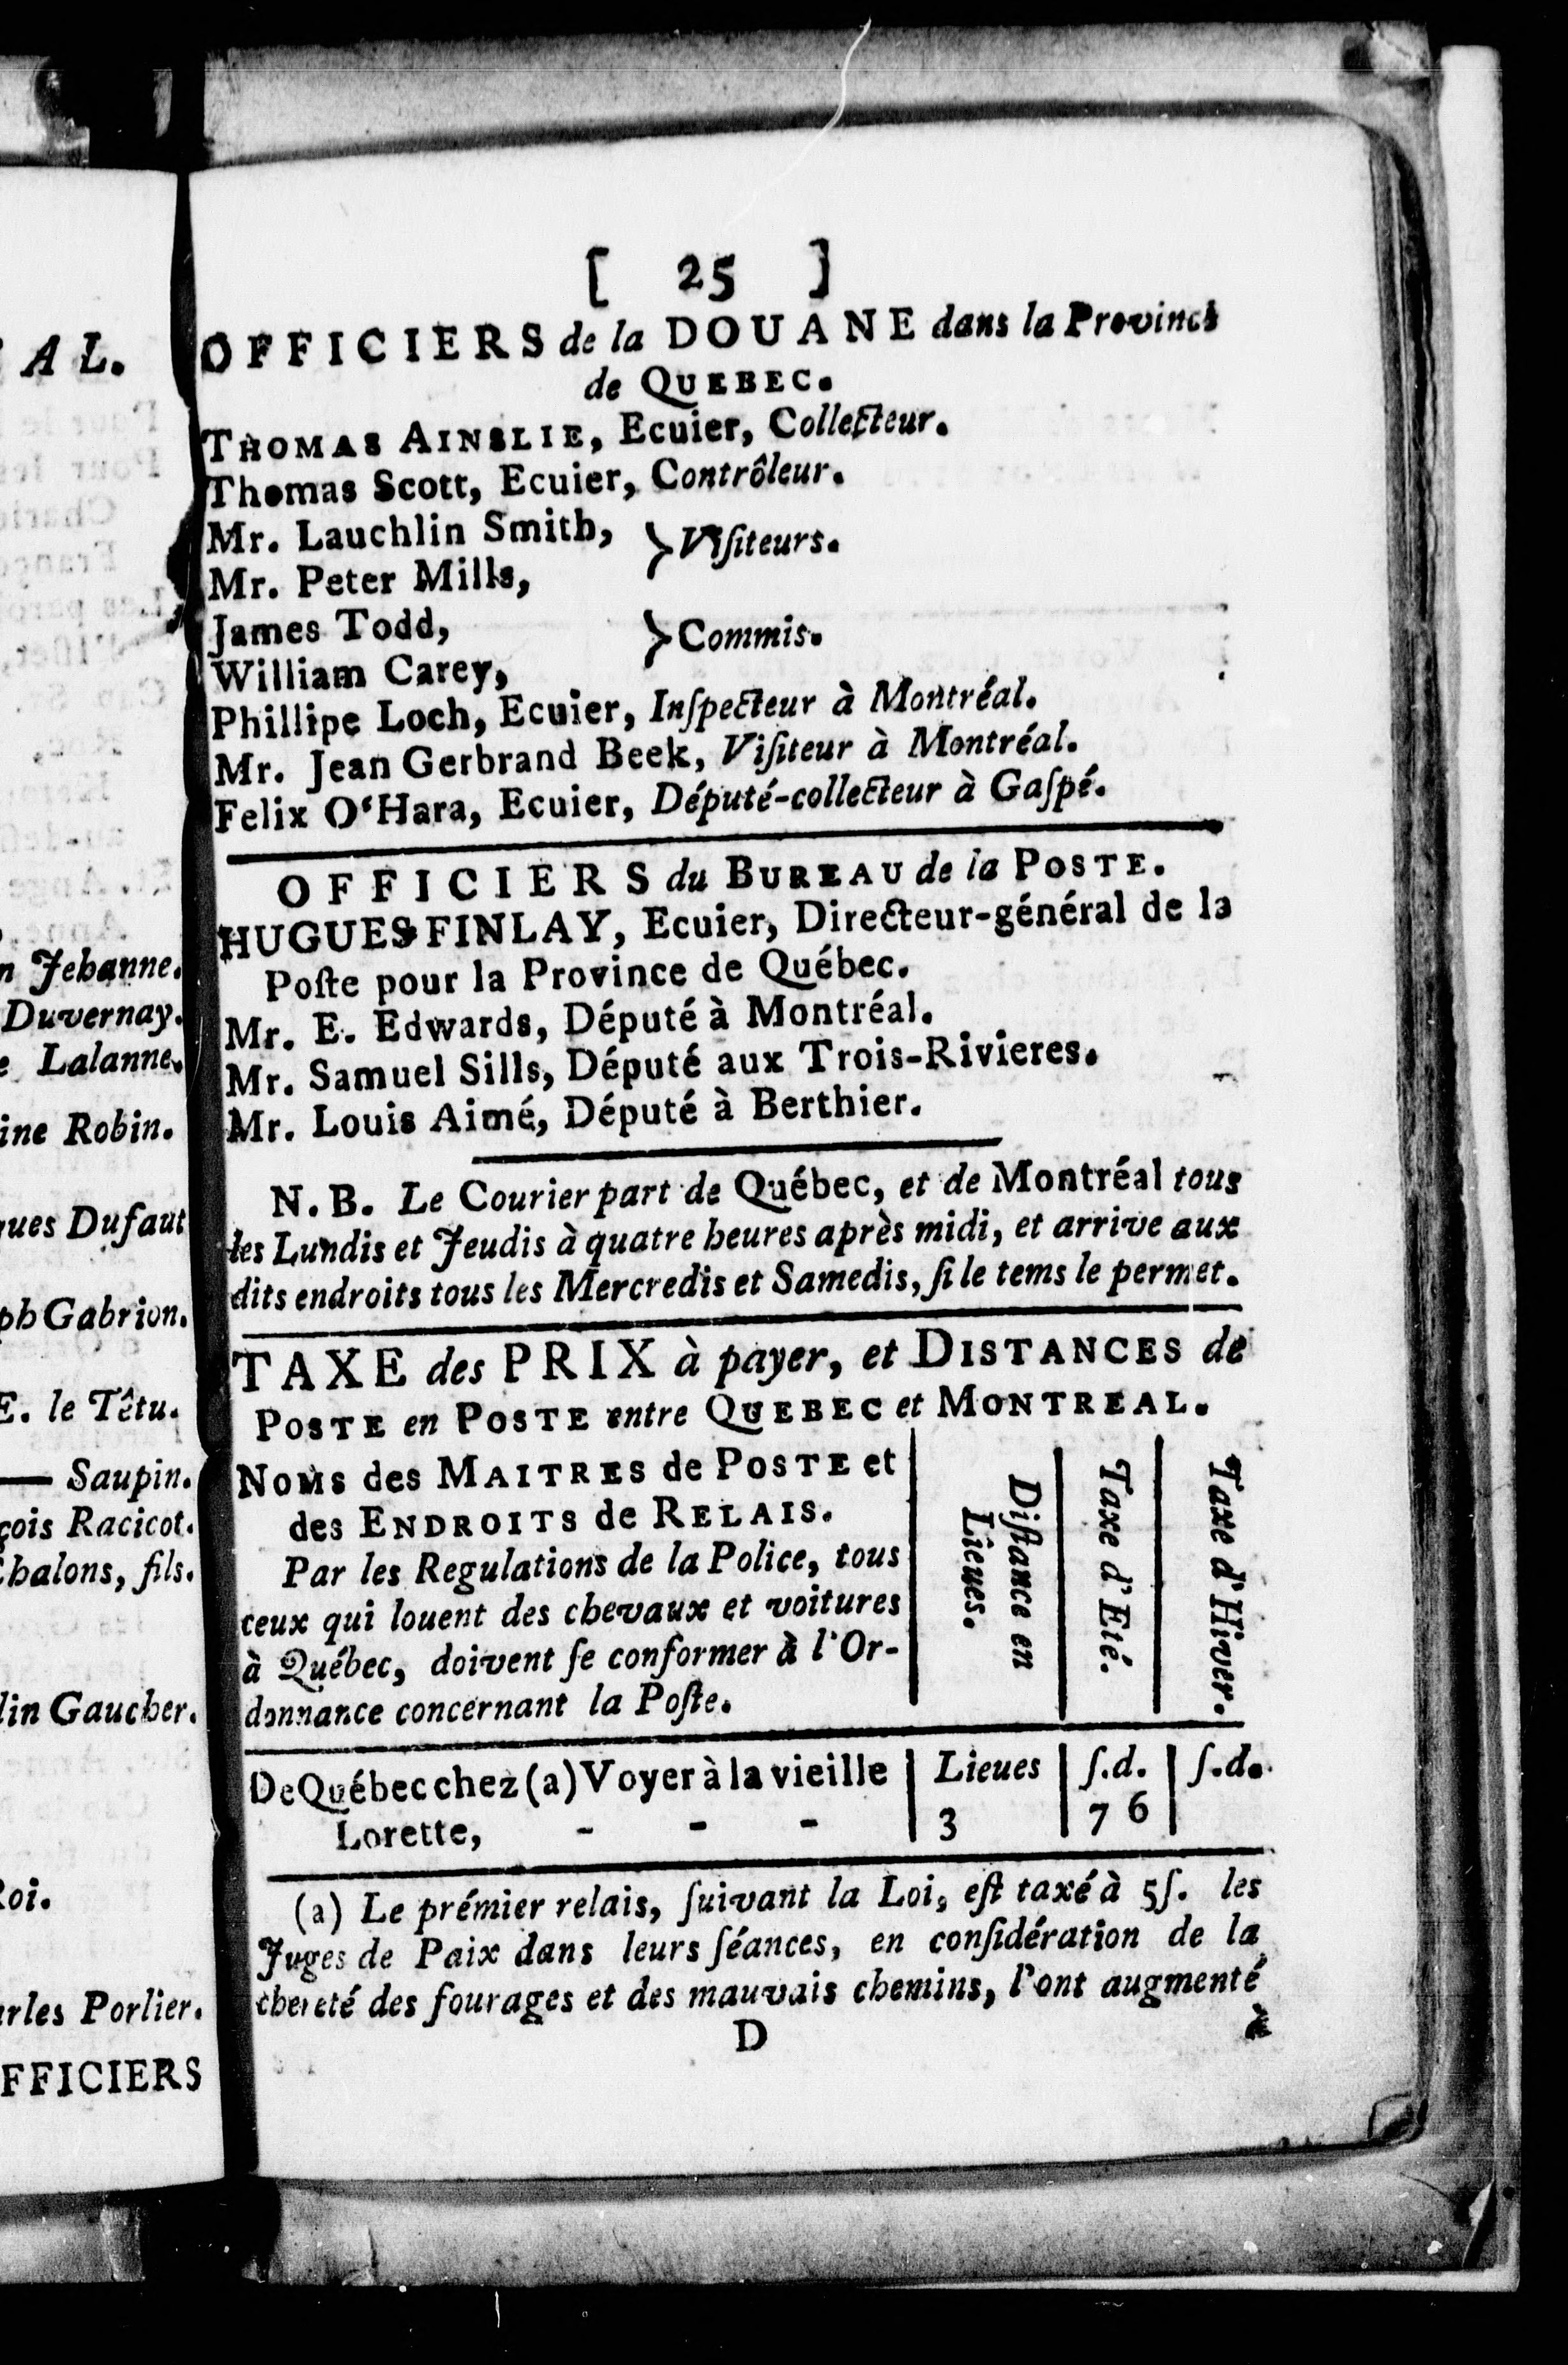 AL.
n Jehanne.
Duvernay.
e Lalanne.
ine Robin.
ques Dufaut
ph Gabrion.
E. le Têtu.
— Saupin.
çois Racicot.
Chalons, fils.
lin Gaucher.
Roi.
arles Porlier.
FFICIERS
[ 25 ]
OFFICIERS de la DOUANE dans la Province
de QUEBEC.
THOMAS AINSLIE, Ecuier, Collecteur.
Thomas Scott, Ecuier, Contrôleur.
Mr. Lauchlin Smith,
Mr. Peter Mills,
} Viſiteurs.
James Todd,
William Carey,
} Commis.
Phillipe Loch, Ecuier, Inſpecteur à Montréal.
Mr. Jean Gerbrand Beek, Viſiteur à Montréal.
Felix O'Hara, Ecuier, Député-collecteur à Gaſpé.
OFFICIERS du BUREAU de la POSTE.
HUGUES FINLAY, Ecuier, Directeur-général de la
Poſte pour la Province de Québec.
Mr. E. Edwards, Député à Montréal.
Mr. Samuel Sills, Député aux Trois-Rivieres.
Mr. Louis Aimé, Député à Berthier.
N. B. Le Courier part de Québec, et de Montréal tous
les Lundis et Jeudis à quatre heures après midi, et arrive aux
dits endroits tous les Mercredis et Samedis, ſi le tems le permet.
TAXE des PRIX à payer, et DISTANCES de
POSTE en POSTE entre QUEBEC et MONTREAL.
NOMS des MAITRES de POSTE et
des ENDROITS de RELAIS.
Par les Regulations de la Police, tous
ceux qui louent des chevaux et voitures
à Québec, doivent ſe conformer à l'Or-
donnance concernant la Poſte.
Diſtance en
Lieues.
Taxe d'Eté.
Taxe d'Hiver.
De Québec chez (a) Voyer à la vieille | Lieues | ſ. d. | ſ. d.
Lorette, - - - | 3 | 7 6 |
(a) Le prémier relais, ſuivant la Loi, eſt taxé à 5ſ. les
Juges de Paix dans leurs ſéances, en conſidération de la
chereté des fourages et des mauvais chemins, l'ont augmenté
D à